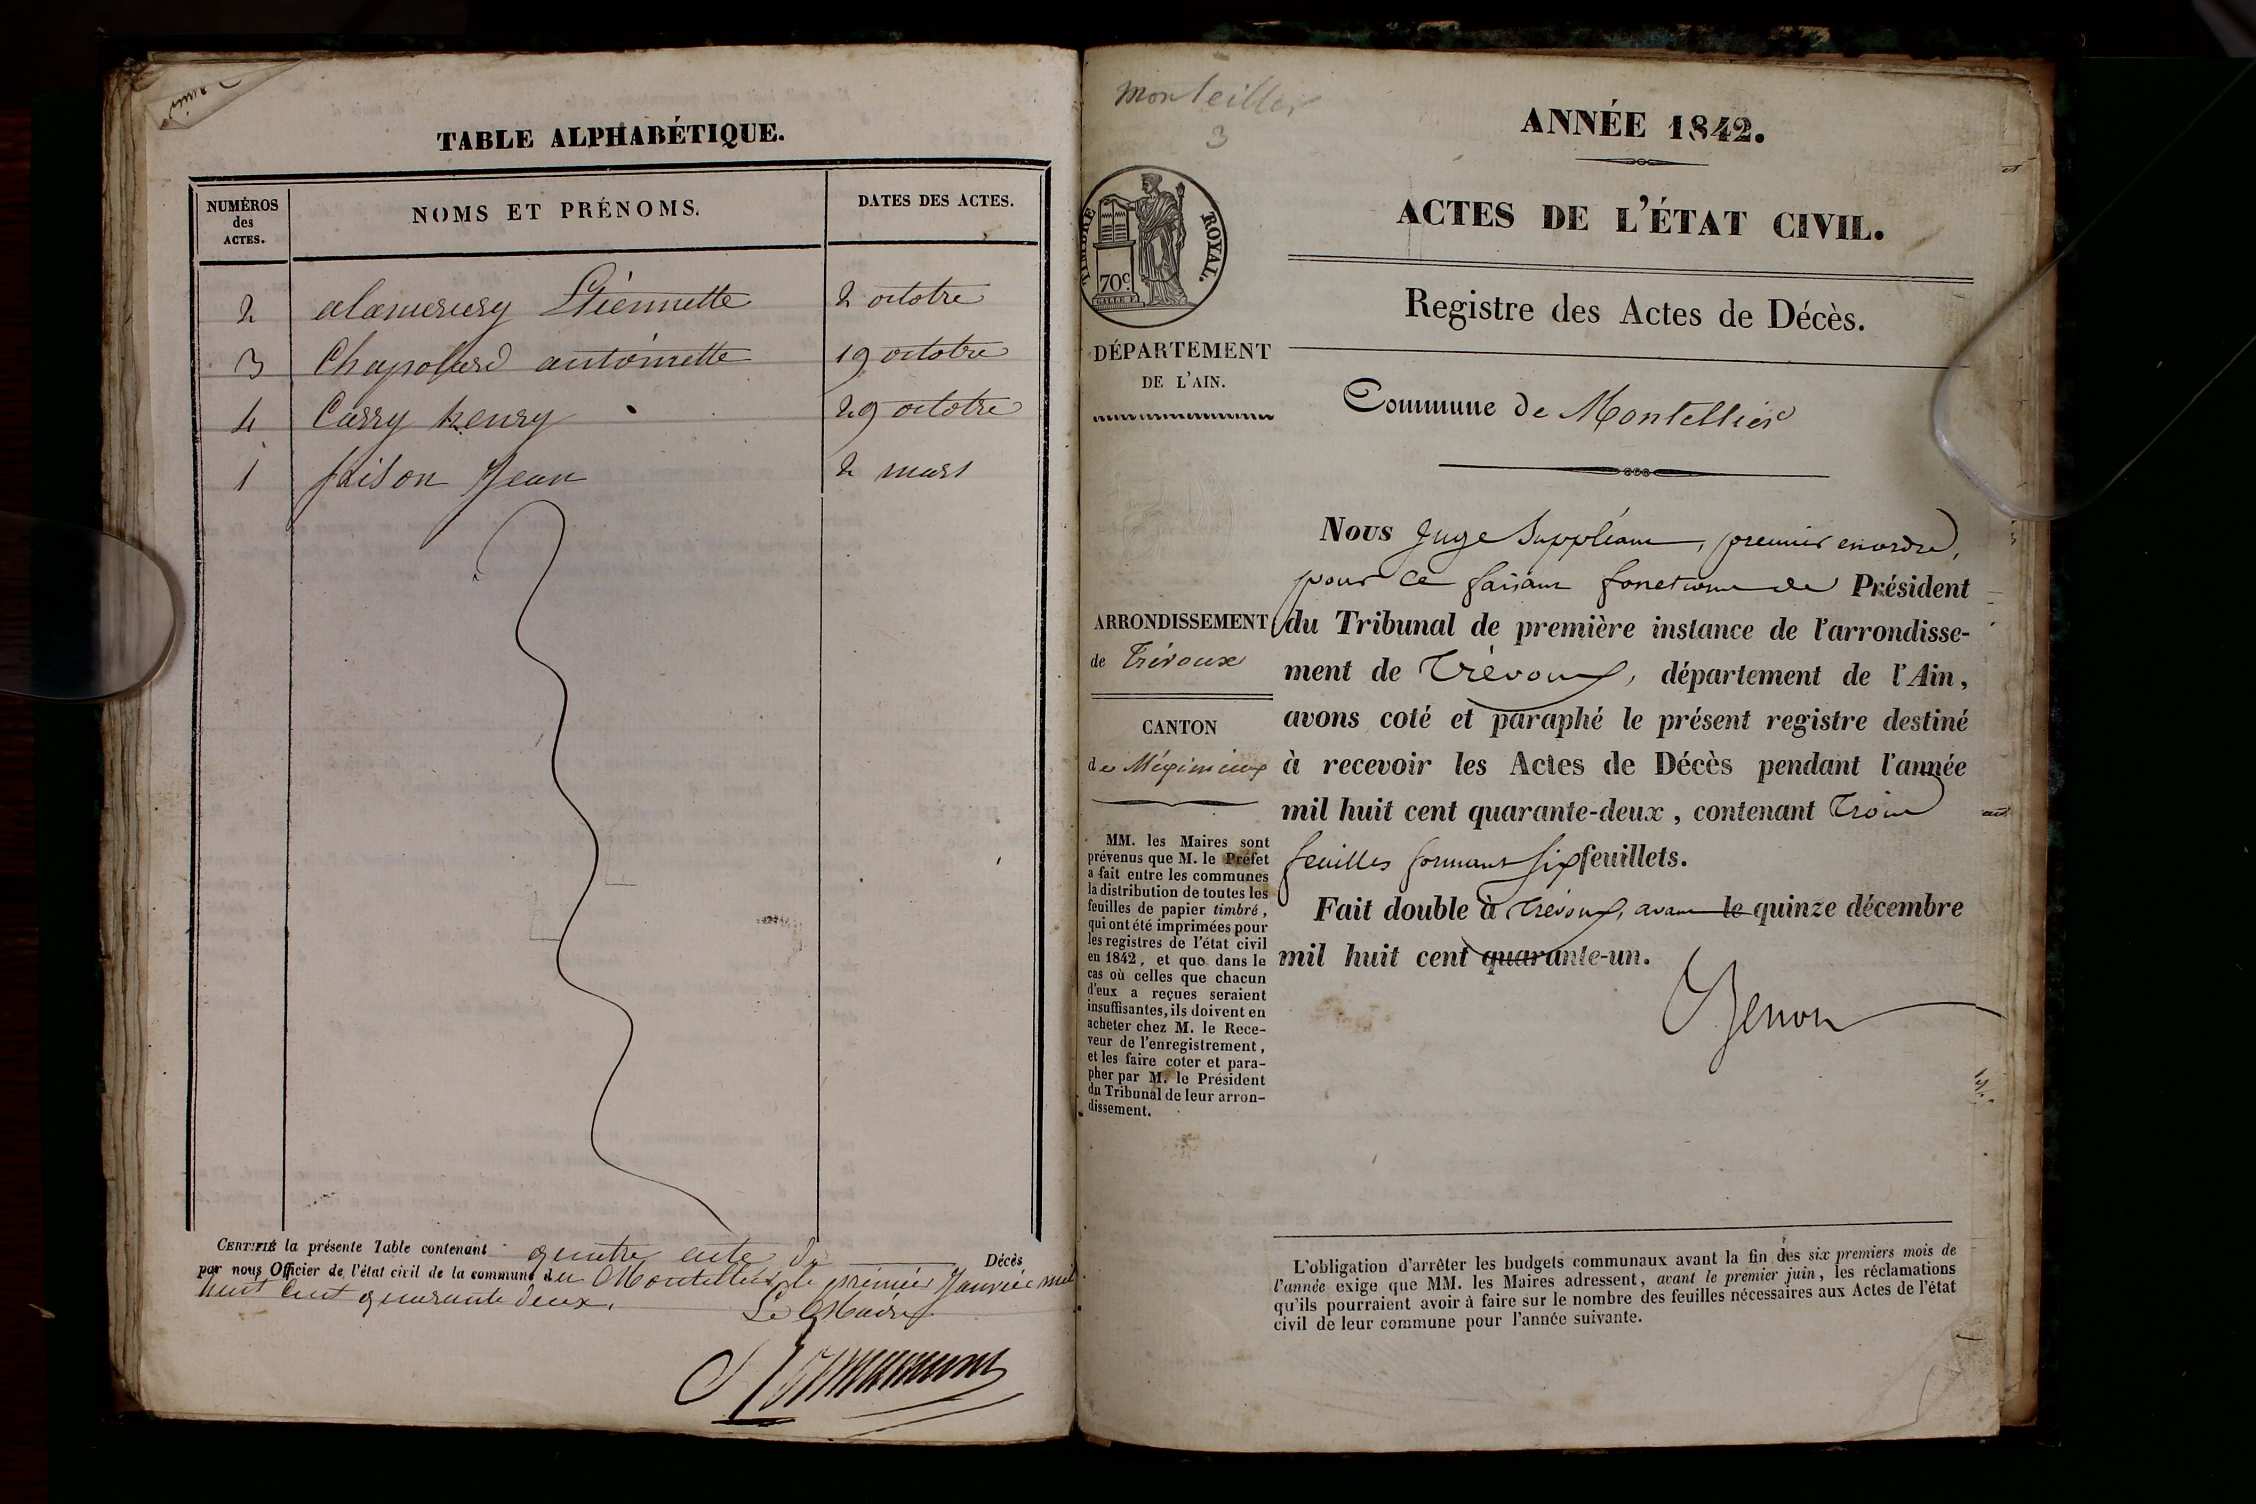 TABLE ALPHABÉTIQUE.
NUMÉROS
des
ACTES.
NOMS ET PRÉNOMS.
DATES DES ACTES.
2 alamercery Etiennette 2 octobre
3 Chapolard antoinette 19 octobre
4 Carry henry 29 octobre
1 frison Jean 2 mars
CERTIFIÉ la présente Table contenant quatre acte de Décès
par nous Officier de l'état civil de la commune de Montellier le premier Janvier mil
huit Cent quarante deux.
Le Maire
Monteillier
3
TIMBRE ROYAL.
70c
DÉPARTEMENT
DE L'AIN.
ARRONDISSEMENT
de Trévoux
CANTON
de Méximieux
MM. les Maires sont
prévenus que M. le Préfet
a fait entre les communes
la distribution de toutes les
feuilles de papier timbré,
qui ont été imprimées pour
les registres de l'état civil
en 1842, et que dans le
cas où celles que chacun
d'eux a reçues seraient
insuffisantes, ils doivent en
acheter chez M. le Rece-
veur de l'enregistrement,
et les faire coter et para-
pher par M. le Président
du Tribunal de leur arron-
dissement.
ANNÉE 1842.
ACTES DE L'ÉTAT CIVIL.
Registre des Actes de Décès.
Commune de Montellier
Nous Juge Suppléant, premier en ordre,
pour ce faisant fonctions de Président
du Tribunal de première instance de l'arrondisse-
ment de Trévoux, département de l'Ain,
avons coté et paraphé le présent registre destiné
à recevoir les Actes de Décès pendant l'année
mil huit cent quarante-deux, contenant Trois
feuilles formant six feuillets.
Fait double à Trévoux, avant le quinze décembre
mil huit cent quarante-un.
L'obligation d'arrêter les budgets communaux avant la fin des six premiers mois de
l'année exige que MM. les Maires adressent, avant le premier juin, les réclamations
qu'ils pourraient avoir à faire sur le nombre des feuilles nécessaires aux Actes de l'état
civil de leur commune pour l'année suivante.